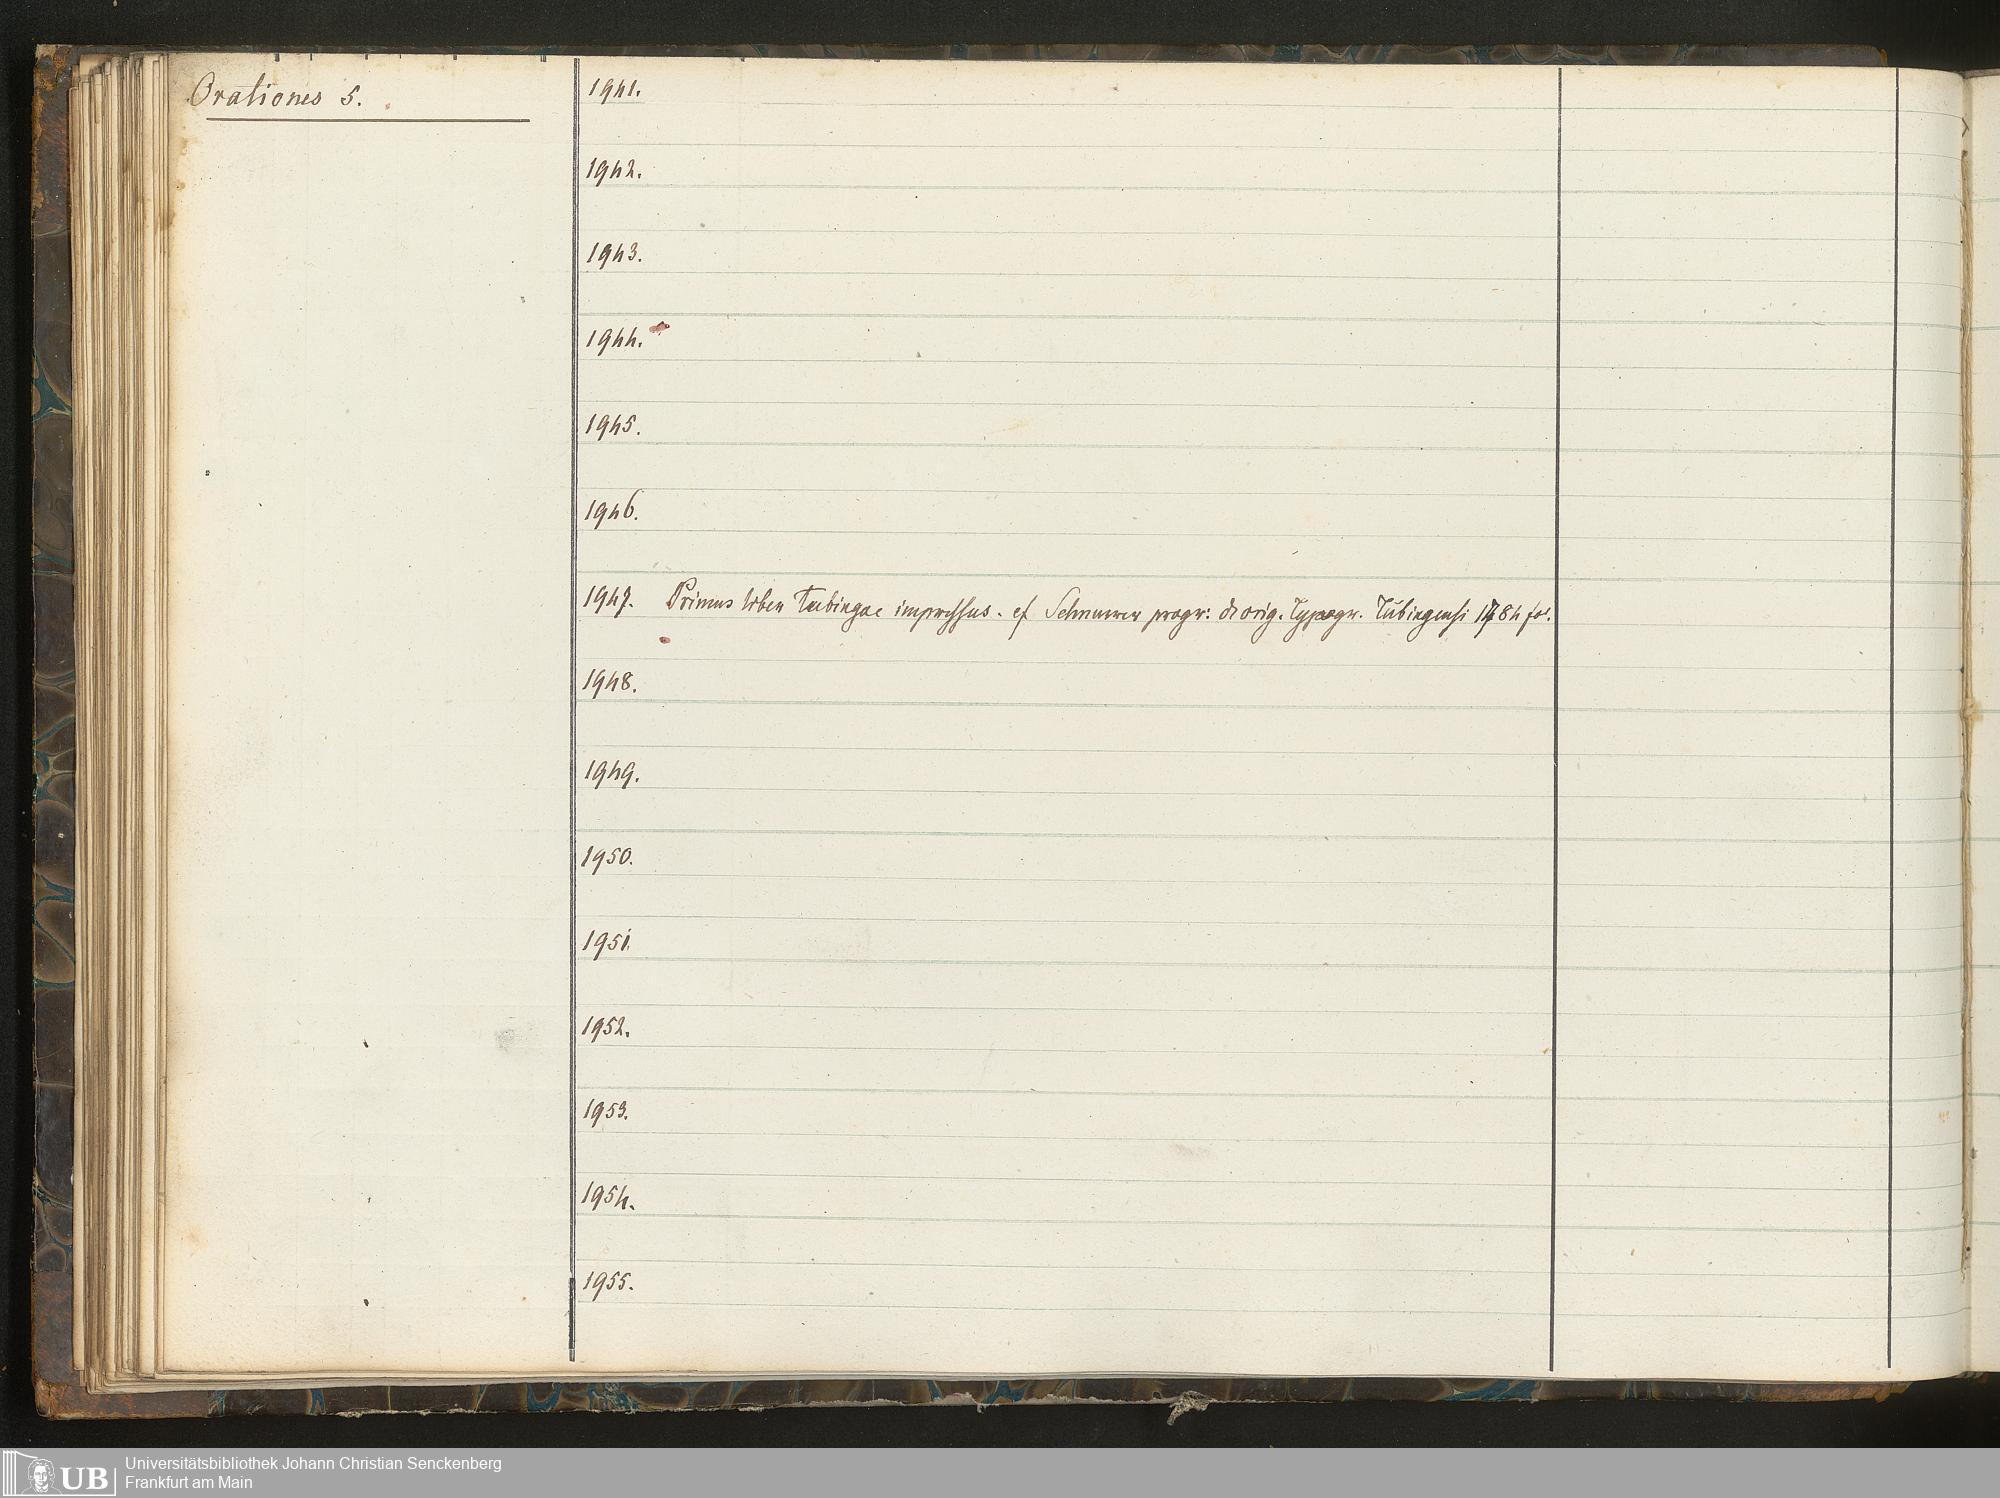 Orationes 5.
1941.
1942.
1943.
1944.
1945.
1946.
1947. Primus liber Tubingae impressus. cf Schnurrer progr: de orig. Typogr. Tubingensi 1784 fol.
1948.
1949.
1950.
1951.
1952.
1953.
1954.
1955.
UB
Universitätsbibliothek Johann Christian Senckenberg
Frankfurt am Main